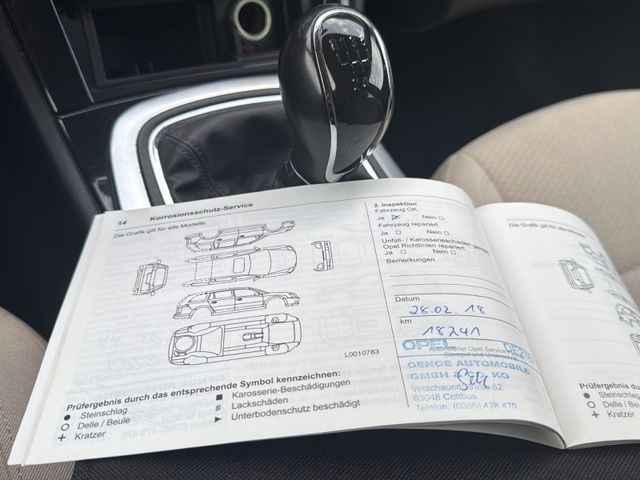 14 Korrosionsschutz-Service
Die Grafik gilt für alle Modelle.
L0010783
Prüfergebnis durch das entsprechende Symbol kennzeichnen:
● Steinschlag
○ Delle / Beule
+ Kratzer
■ Karosserie-Beschädigungen
# Lackschäden
► Unterbodenschutz beschädigt
2. Inspektion
Fahrzeug OK
Ja ☒ Nein □
Fahrzeug repariert
Ja □ Nein □
Unfall- / Karosserieschäden
Opel Richtlinien repariert
Ja □ Nein □
Bemerkungen
Datum
28.02.18
km
18241
OPEL
Autorisierter Opel Service
Stempel und
GENGE AUTOMOBILE
GMBH & CO. KG
03048 Cottbus
Telefon: (0355) 478 470
Prüfergebnis du
● Steinschlag
○ Delle / Beule
+ Kratzer